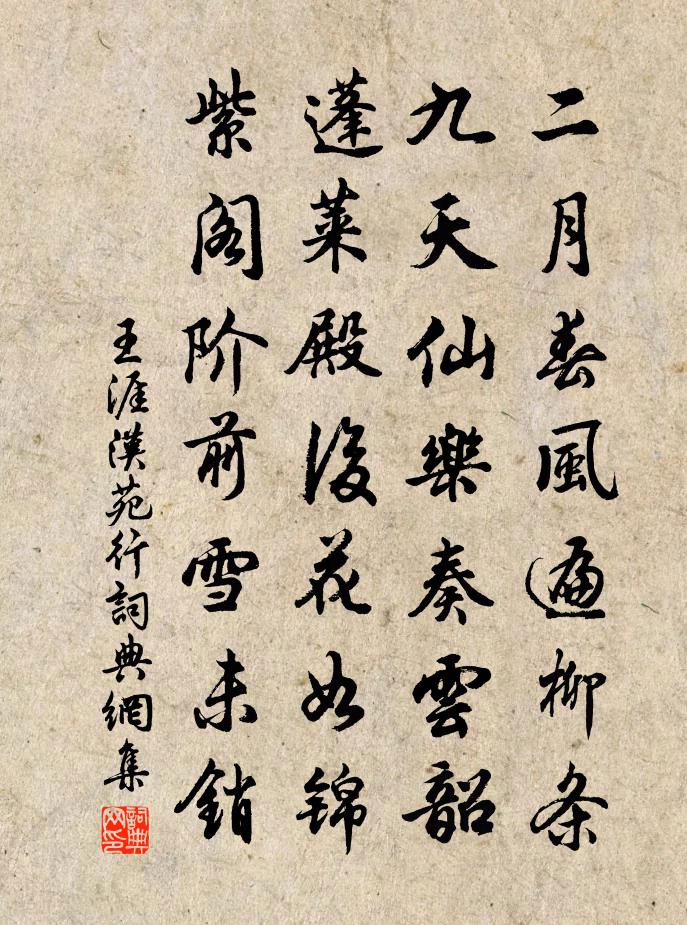 二月春風遍柳条
九天仙樂奏雲韶
蓬萊殿後花如锦
紫阁阶前雪未銷
王涯漢苑行詞典網集
詞典网印